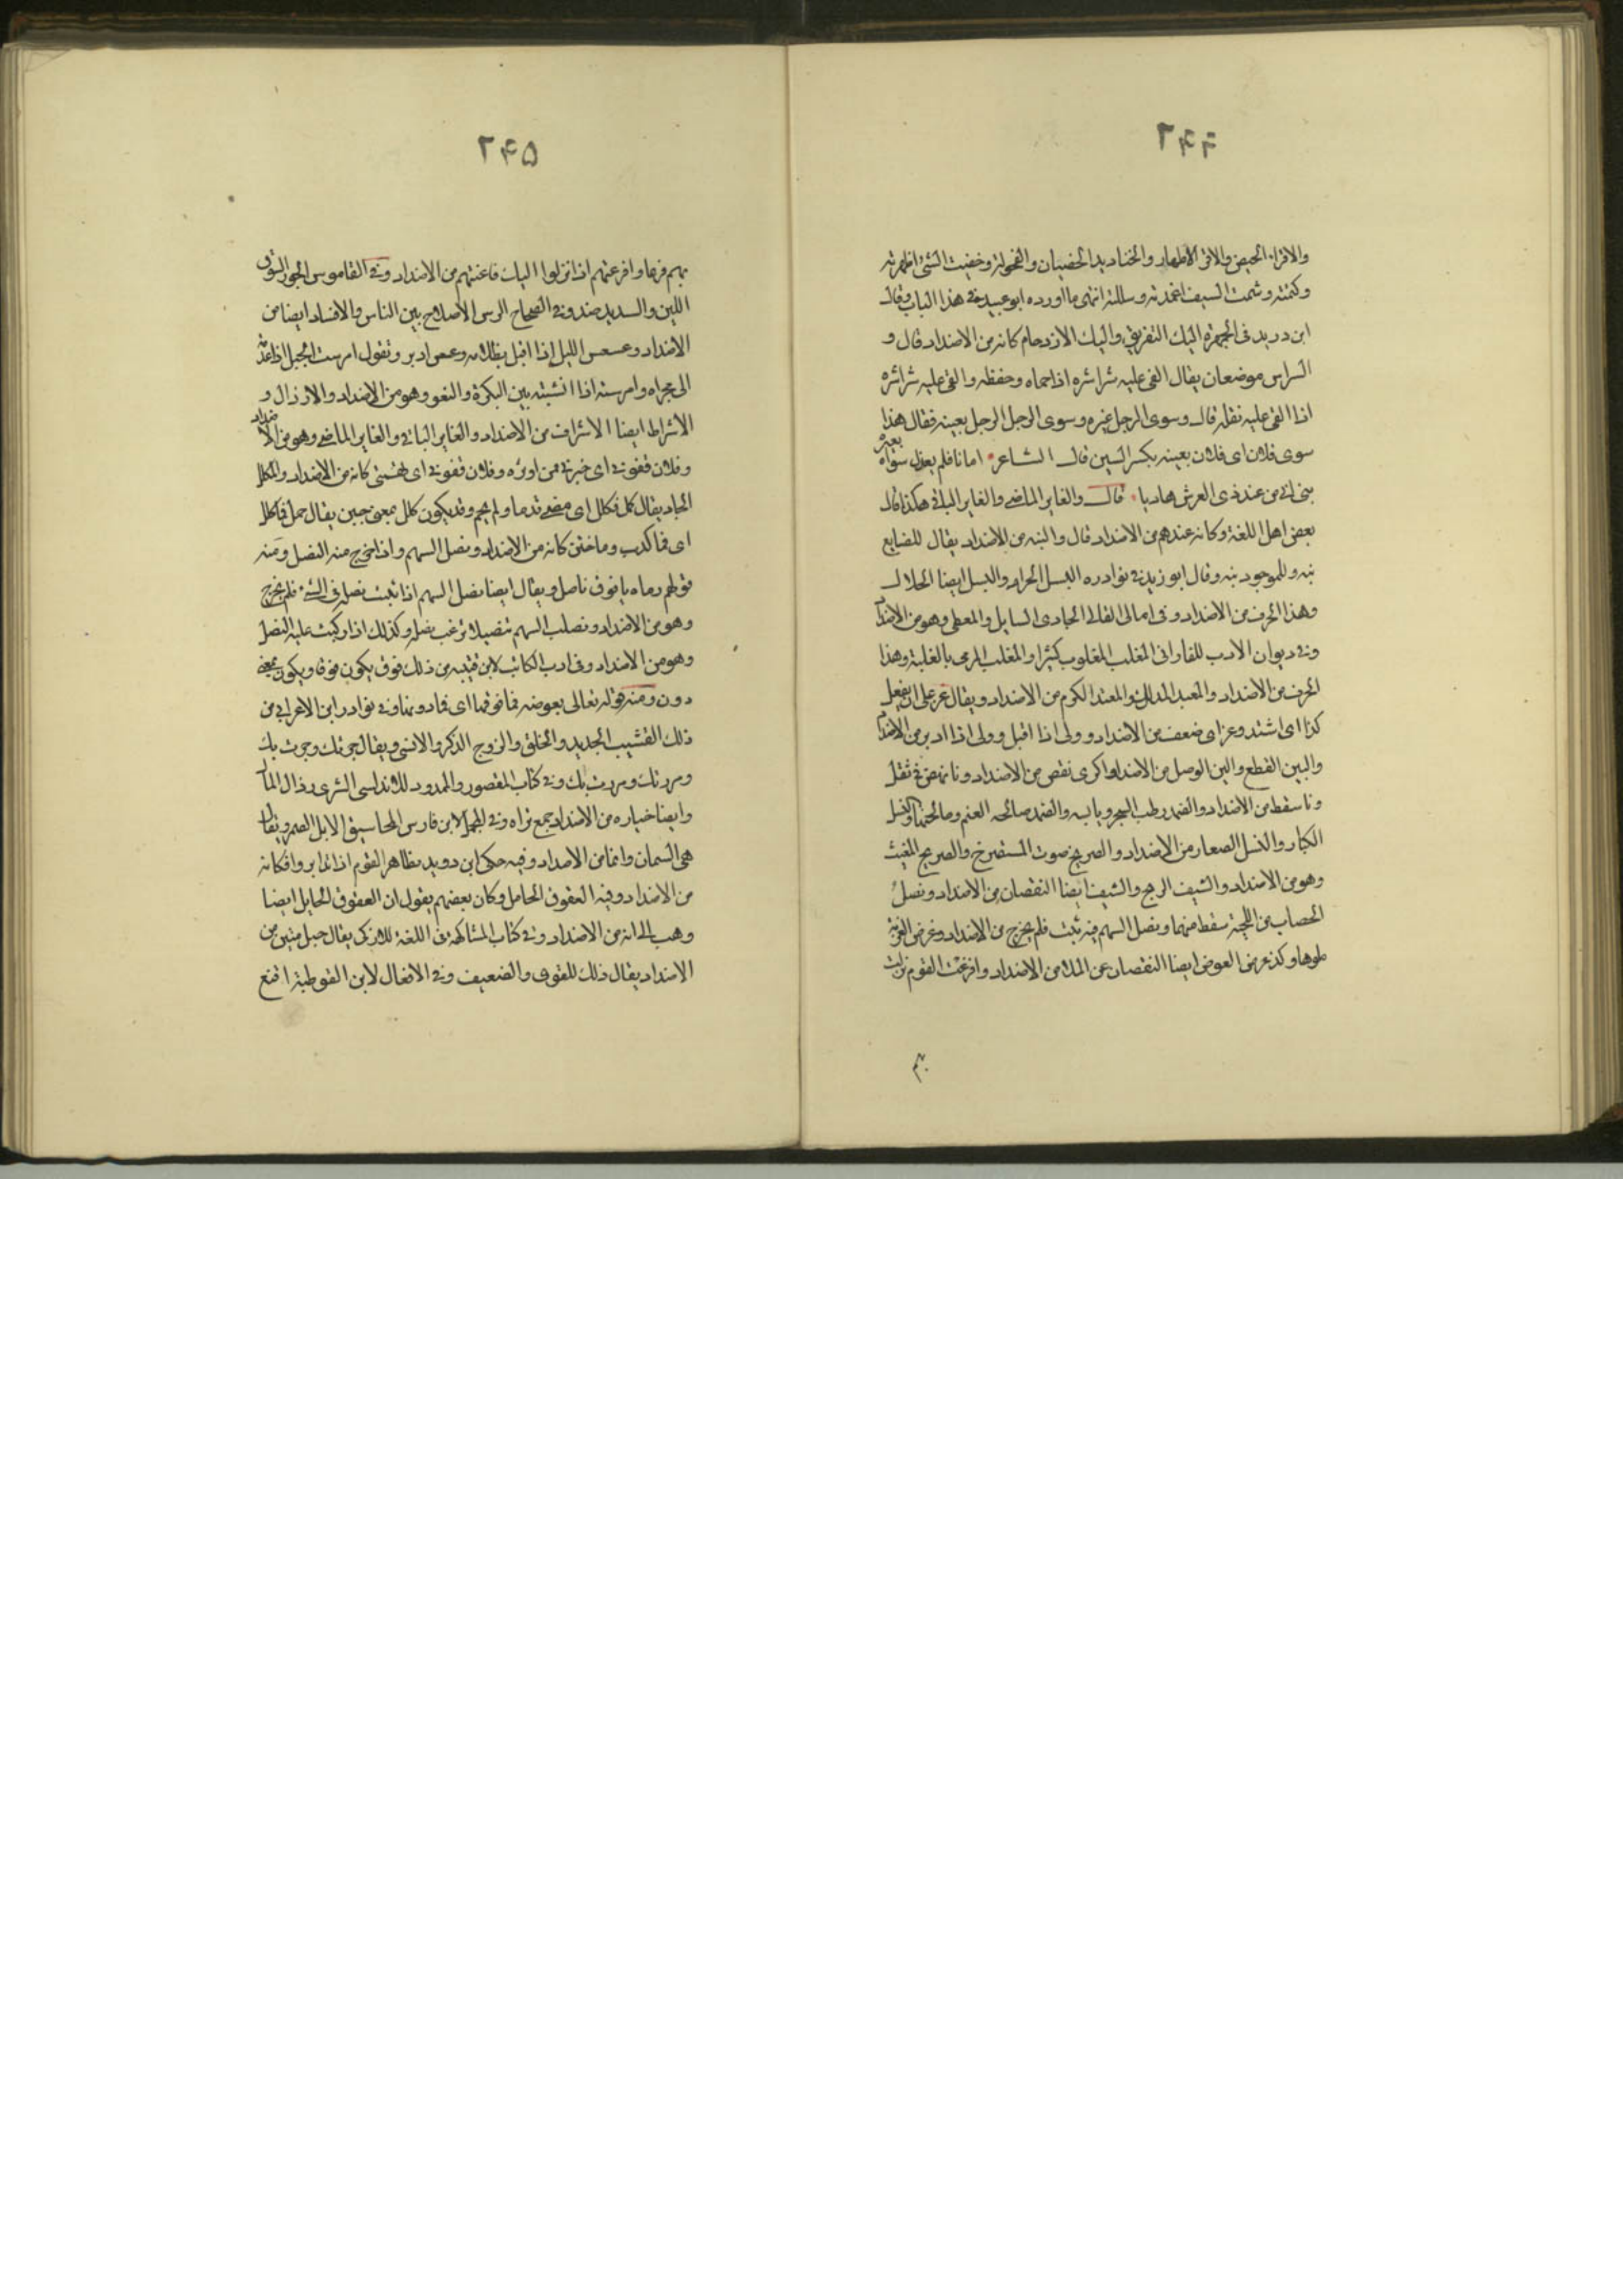 ٢٤٤
والاقراء الحيض والاقراء الاطهار والخناديد الخصيان والفحولة وخفيت الشئ اظهرته
وكتمته وشمت السيف اغمدته وسللته انتهى ما اورده ابو عبيد في هذا الباب وقال
ابن دريد فى الجمهرة البك التفريق والبك الازدحام كانه من الاضداد قال و
الشراشر موضعان يقال القى عليه شراشره اذا حماه وحفظه والقى عليه شراشره
اذا القى عليه ثقله قال وسوى الرجل غيره وسوى الرجل الرجل بعينه فقال هذا
سوى فلان اى فلان بعينه بكسر السين قال الشاعر اما نا فلم يعدل سواه بغيره
نبى اتى من عند ذى العرش هاديا قال والغابر الماضى والغابر الباقى هكذا قال
بعض اهل اللغة وكانه عندهم من الاضداد قال والنبه من الاضداد يقال للضايع
نبه وللموجود نبه وقال ابو زيد فى نوادره البسل الحرام والبسل ايضا الحلال
وهذا الحرف من الاضداد وفى امالى القالى الجادى السايل والمعطى وهو من الاضداد
وفى ديوان الادب للفارابى المغلب المغلوب كثيرا والمغلب المرمى بالغلبة وهذا
الحرف من الاضداد والمعبد المذلل والمعبد المكرم من الاضداد ويقال عز على ان يفعل
كذا اى اشتد وعز اى ضعف من الاضداد وولى اذا اقبل وولى اذا ادبر من الاضداد
والبين القطع والبين الوصل من الاضداد واكرى نقص من الاضداد ونا نهض فى ثقل
ونا سقط من الاضداد والضمد رطب الشجر ويابسه والضمد صالحه الغنم وصالحتها والفسل
الكبار والفسل الصغار من الاضداد والصريخ صوت المستصرخ والصريخ المغيث
وهو من الاضداد والشيف الربح والشيف ايضا النقصان من الاضداد ونصل
الخصاب من اللحية سقط منها ونصل السهم فيه ثبت فلم يخرج من الاضداد وغرض القربة
ملوها وكذ غرض الحوض ايضا النقصان عن الملا من الاضداد وافرغت القوم نزلت
بهم
٢٤٥
بهم فرعا وافرعتهم اذا نزلوا اليك فاعنتهم من الاضداد وفى القاموس الجور السوق
اللين والشديد ضد وفى الصحاح الرس الاصلاح بين الناس والافساد ايضا من
الاضداد وعسعس الليل اذا اقبل بظلامه وعسعس ادبر وتقول امرست الحبل اذا اعدته
الى مجراه وامرسته اذا انشبته بين البكرة والقعو وهو من الاضداد والارذال و
الاشراط ايضا الاشراف من الاضداد والغابر الباقى والغابر الماضى وهو من الاضداد
وفلان قفوتى اى خيرتى ممن اوثره وفلان قفوتى اى تهمتى كانه من الاضداد والمكلل
الجاد يقال كل فكلل اى مضى قدما ولم يجم وقد يكون كلل بمعنى جبن يقال حمل فما كلل
اى فما كذب وما جبن كانه من الاضداد ونصل السهم واذا خرج منه النصل ومنه
قولهم رماه بافوق ناصل ويقال ايضا نصل السهم اذا ثبت نصله فى الشئ فلم يخرج
وهو من الاضداد ونصلت السهم تنصيلا نزعت نصله وكذلك اذا ركبت عليه النصل
وهو من الاضداد وفى ادب الكاتب لابن قتيبه من ذلك فوق يكون فوق ويكون بمعنى
دون ومنه قوله تعالى بعوضه فما فوقها اى فما دونها وفى نوادر ابن الاعرابى من
ذلك القشيب الجديد والخلق والزوج الذكر والانثى ويقال جزتك وجزت بك
ومررتك ومررت بك وفى كتاب المقصور والممدود للاندلسى الشرى رذال المال
وايضا خياره من الاضداد جمع شراه وفى المجمل لابن فارس المحاسيق الابل الضمر ويقال
هى السمان وانها من الاضداد وفيه حكى ابن دريد تظاهر القوم اذا تدابروا فكانه
من الاضداد وفيه العقوق الحامل وكان بعضهم يقول ان العقوق الحايل ايضا
وذهب الى انه من الاضداد وفى كتاب المشاكهة من اللغة للازدى يقال حبل متين من
الاضداد يقال ذلك للقوى والضعيف وفى الافعال لابن القوطية اقنع